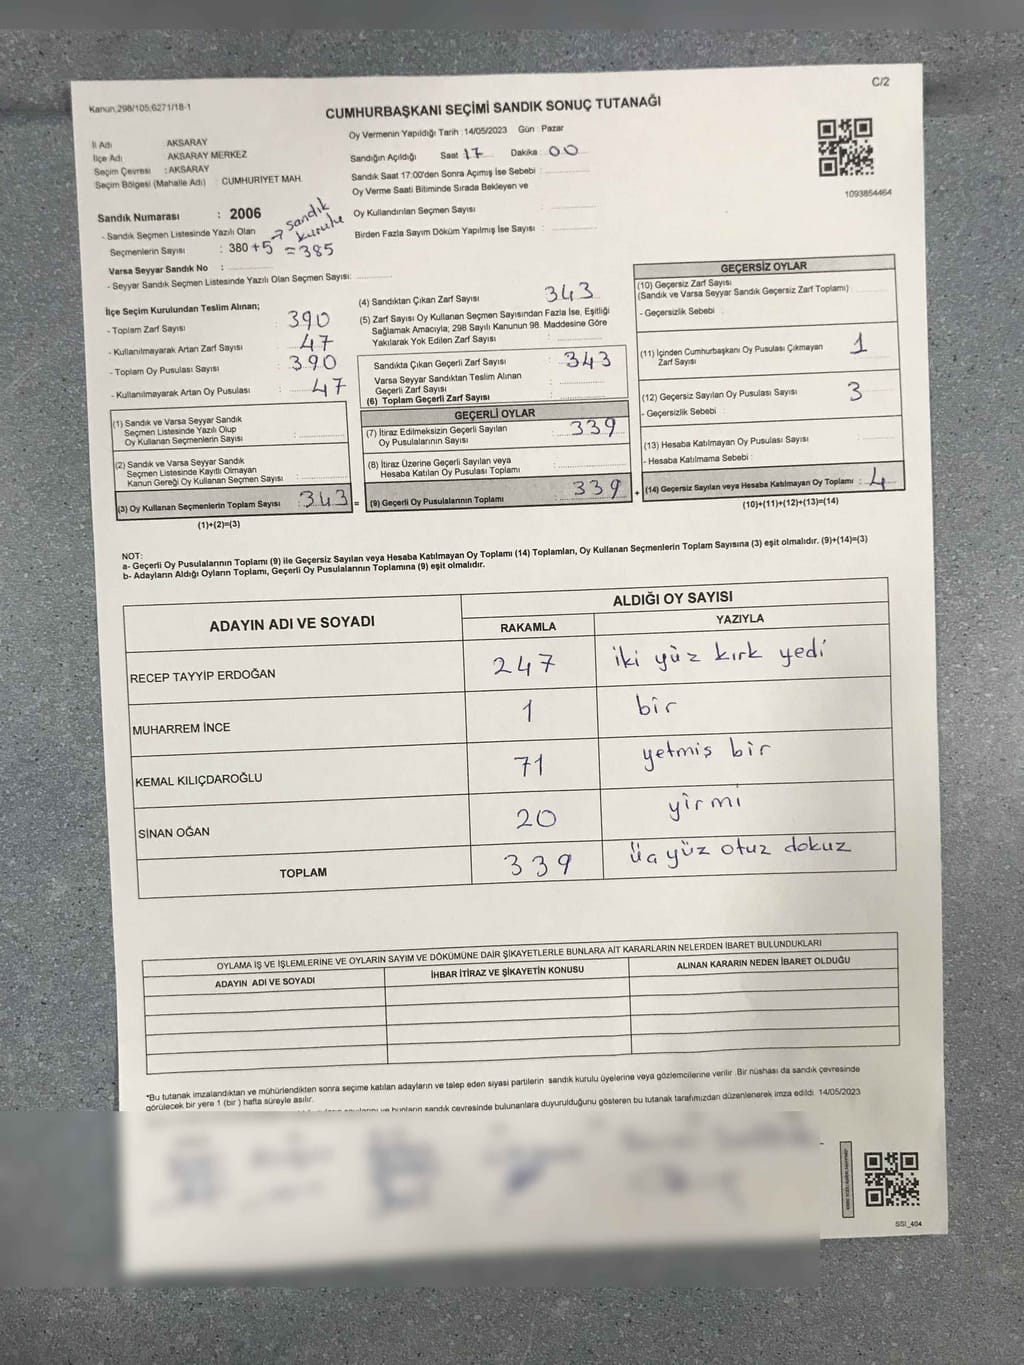 C/2
Kanun 298/105;6271/18-1
CUMHURBAŞKANI SEÇİMİ SANDIK SONUÇ TUTANAĞI
İl Adı : AKSARAY
İlçe Adı : AKSARAY MERKEZ
Seçim Çevresi : AKSARAY
Seçim Bölgesi (Mahalle Adı) : CUMHURİYET MAH.
Oy Vermenin Yapıldığı Tarih :14/05/2023 Gün : Pazar
Sandığın Açıldığı Saat 17 Dakika : 00
Sandık Saat 17:00'den Sonra Açımış İse Sebebi :
Oy Verme Saati Bitiminde Sırada Bekleyen ve
Oy Kullandırılan Seçmen Sayısı :
Birden Fazla Sayım Döküm Yapılmış İse Sayısı :
1093854464
Sandık Numarası : 2006
- Sandık Seçmen Listesinde Yazılı Olan
Seçmenlerin Sayısı : 380 +5 → sandık kurulu
= 385
Varsa Seyyar Sandık No :
- Seyyar Sandık Seçmen Listesinde Yazılı Olan Seçmen Sayısı:
İlçe Seçim Kurulundan Teslim Alınan;
- Toplam Zarf Sayısı : 390
- Kullanılmayarak Artan Zarf Sayısı : 47
- Toplam Oy Pusulası Sayısı : 390
- Kullanılmayarak Artan Oy Pusulası : 47
(1) Sandık ve Varsa Seyyar Sandık
Seçmen Listesinde Yazılı Olup
Oy Kullanan Seçmenlerin Sayısı :
(2) Sandık ve Varsa Seyyar Sandık
Seçmen Listesinde Kayıtlı Olmayan
Kanun Gereği Oy Kullanan Seçmen Sayısı :
(3) Oy Kullanan Seçmenlerin Toplam Sayısı : 343 =
(1)+(2)=(3)
(4) Sandıktan Çıkan Zarf Sayısı : 343
(5) Zarf Sayısı Oy Kullanan Seçmen Sayısından Fazla İse, Eşitliği
Sağlamak Amacıyla; 298 Sayılı Kanunun 98. Maddesine Göre
Yakılarak Yok Edilen Zarf Sayısı :
Sandıkta Çıkan Geçerli Zarf Sayısı : 343
Varsa Seyyar Sandıktan Teslim Alınan
Geçerli Zarf Sayısı :
(6) Toplam Geçerli Zarf Sayısı :
GEÇERLİ OYLAR
(7) İtiraz Edilmeksizin Geçerli Sayılan
Oy Pusulalarının Sayısı : 339
(8) İtiraz Üzerine Geçerli Sayılan veya
Hesaba Katılan Oy Pusulası Toplamı :
(9) Geçerli Oy Pusulalarının Toplamı : 339 +
GEÇERSİZ OYLAR
(10) Geçersiz Zarf Sayısı
(Sandık ve Varsa Seyyar Sandık Geçersiz Zarf Toplamı) :
- Geçersizlik Sebebi :
(11) İçinden Cumhurbaşkanı Oy Pusulası Çıkmayan
Zarf Sayısı : 1
(12) Geçersiz Sayılan Oy Pusulası Sayısı : 3
- Geçersizlik Sebebi :
(13) Hesaba Katılmayan Oy Pusulası Sayısı :
- Hesaba Katılmama Sebebi :
(14) Geçersiz Sayılan veya Hesaba Katılmayan Oy Toplamı : 4
(10)+(11)+(12)+(13)=(14)
NOT:
a- Geçerli Oy Pusulalarının Toplamı (9) ile Geçersiz Sayılan veya Hesaba Katılmayan Oy Toplamı (14) Toplamları, Oy Kullanan Seçmenlerin Toplam Sayısına (3) eşit olmalıdır. (9)+(14)=(3)
b- Adayların Aldığı Oyların Toplamı, Geçerli Oy Pusulalarının Toplamına (9) eşit olmalıdır.
ADAYIN ADI VE SOYADI
ALDIĞI OY SAYISI
RAKAMLA YAZIYLA
RECEP TAYYİP ERDOĞAN 247 iki yüz kırk yedi
MUHARREM İNCE 1 bir
KEMAL KILIÇDAROĞLU 71 yetmiş bir
SİNAN OĞAN 20 yirmi
TOPLAM 339 Üç yüz otuz dokuz
OYLAMA İŞ VE İŞLEMLERİNE VE OYLARIN SAYIM VE DÖKÜMÜNE DAİR ŞİKAYETLERLE BUNLARA AİT KARARLARIN NELERDEN İBARET BULUNDUKLARI
ADAYIN ADI VE SOYADI İHBAR İTİRAZ VE ŞİKAYETİN KONUSU ALINAN KARARIN NEDEN İBARET OLDUĞU
"Bu tutanak imzalandıktan ve mühürlendikten sonra seçime katılan adayların ve talep eden siyasi partilerin sandık kurulu üyelerine veya gözlemcilerine verilir .Bir nüshası da sandık çevresinde
görülecek bir yere 1 (bir ) hafta süreyle asılır.
bunların sandık çevresinde bulunanlara duyurulduğunu gösteren bu tutanak tarafımızdan düzenlenerek imza edildi. 14/05/2023
SSI_404